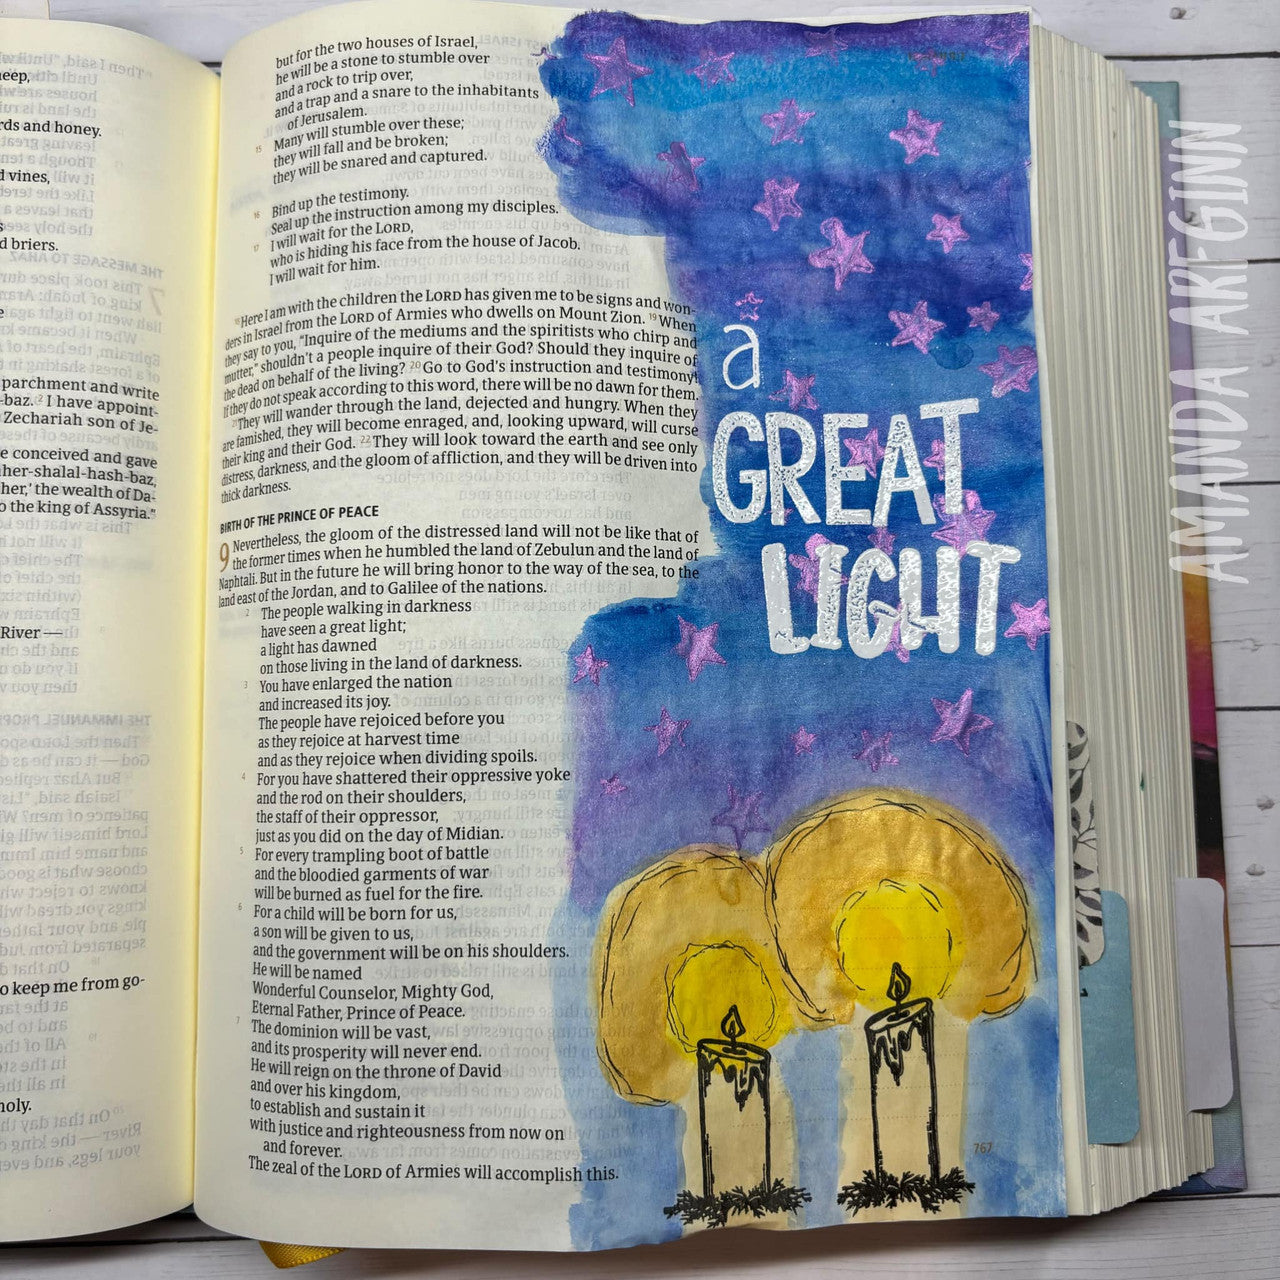 eep,
rds and honey.
d vines,
d briers.
parchment and write
-baz. 2 I have appoint-
Zechariah son of Je-
e conceived and gave
her-shalal-hash-baz,
her,' the wealth of Da-
o the king of Assyria."
River —
o keep me from go-
holy.
but for the two houses of Israel,
he will be a stone to stumble over
and a rock to trip over,
and a trap and a snare to the inhabitants
of Jerusalem.
15 Many will stumble over these;
they will fall and be broken;
they will be snared and captured.
16 Bind up the testimony.
Seal up the instruction among my disciples.
17 I will wait for the LORD,
who is hiding his face from the house of Jacob.
I will wait for him.
18 Here I am with the children the LORD has given me to be signs and won-
ders in Israel from the LORD of Armies who dwells on Mount Zion. 19 When
they say to you, "Inquire of the mediums and the spiritists who chirp and
mutter," shouldn't a people inquire of their God? Should they inquire of
the dead on behalf of the living? 20 Go to God's instruction and testimony!
If they do not speak according to this word, there will be no dawn for them.
21 They will wander through the land, dejected and hungry. When they
are famished, they will become enraged, and, looking upward, will curse
their king and their God. 22 They will look toward the earth and see only
distress, darkness, and the gloom of affliction, and they will be driven into
thick darkness.
BIRTH OF THE PRINCE OF PEACE
9 Nevertheless, the gloom of the distressed land will not be like that of
the former times when he humbled the land of Zebulun and the land of
Naphtali. But in the future he will bring honor to the way of the sea, to the
land east of the Jordan, and to Galilee of the nations.
2 The people walking in darkness
have seen a great light;
a light has dawned
on those living in the land of darkness.
3 You have enlarged the nation
and increased its joy.
The people have rejoiced before you
as they rejoice at harvest time
and as they rejoice when dividing spoils.
4 For you have shattered their oppressive yoke
and the rod on their shoulders,
the staff of their oppressor,
just as you did on the day of Midian.
5 For every trampling boot of battle
and the bloodied garments of war
will be burned as fuel for the fire.
6 For a child will be born for us,
a son will be given to us,
and the government will be on his shoulders.
He will be named
Wonderful Counselor, Mighty God,
Eternal Father, Prince of Peace.
7 The dominion will be vast,
and its prosperity will never end.
He will reign on the throne of David
and over his kingdom,
to establish and sustain it
with justice and righteousness from now on
and forever.
The zeal of the LORD of Armies will accomplish this.
a
GREAT
LIGHT
767
AMANDA ARFGINN